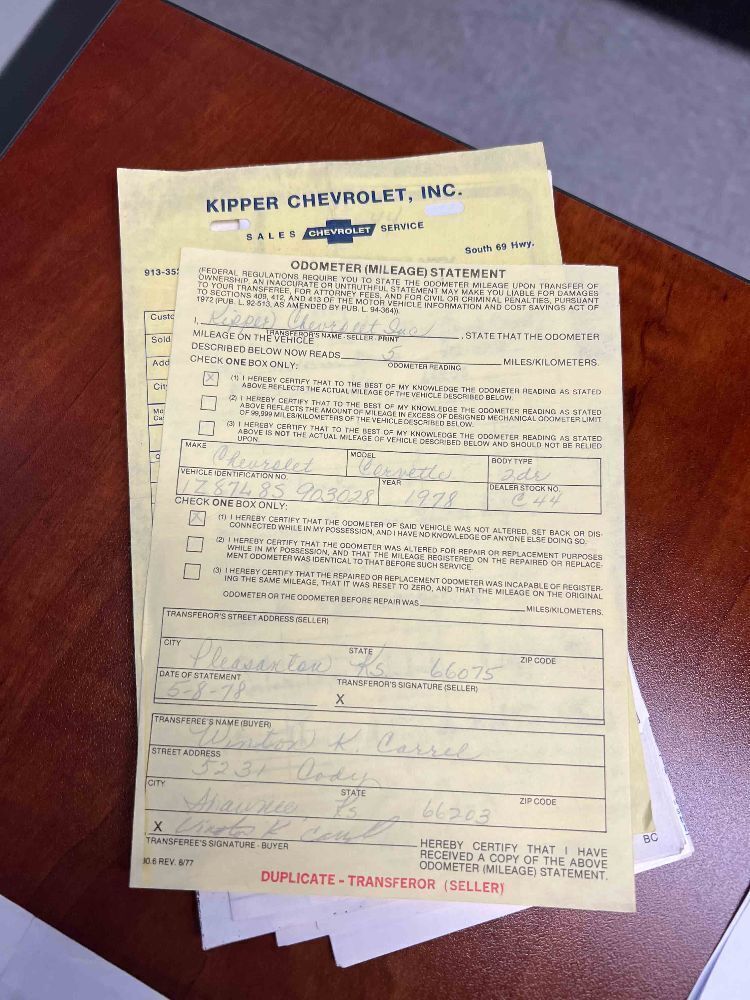 KIPPER CHEVROLET, INC.
SALES CHEVROLET SERVICE
South 69 Hwy.
913-35
ODOMETER (MILEAGE) STATEMENT
(FEDERAL REGULATIONS REQUIRE YOU TO STATE THE ODOMETER MILEAGE UPON TRANSFER OF
OWNERSHIP. AN INACCURATE OR UNTRUTHFUL STATEMENT MAY MAKE YOU LIABLE FOR DAMAGES
TO YOUR TRANSFEREE, FOR ATTORNEY FEES, AND FOR CIVIL OR CRIMINAL PENALTIES, PURSUANT
TO SECTIONS 409, 412, AND 413 OF THE MOTOR VEHICLE INFORMATION AND COST SAVINGS ACT OF
1972 (PUB. L. 92-513, AS AMENDED BY PUB. L. 94-364)).
I, Kipper Chevrolet Inc, STATE THAT THE ODOMETER
TRANSFEROR'S NAME - SELLER - PRINT
MILEAGE ON THE VEHICLE
DESCRIBED BELOW NOW READS 5 MILES/KILOMETERS.
ODOMETER READING
CHECK ONE BOX ONLY:
X (1) I HEREBY CERTIFY THAT TO THE BEST OF MY KNOWLEDGE THE ODOMETER READING AS STATED
ABOVE REFLECTS THE ACTUAL MILEAGE OF THE VEHICLE DESCRIBED BELOW.
(2) I HEREBY CERTIFY THAT TO THE BEST OF MY KNOWLEDGE THE ODOMETER READING AS STATED
ABOVE REFLECTS THE AMOUNT OF MILEAGE IN EXCESS OF DESIGNED MECHANICAL ODOMETER LIMIT
OF 99,999 MILES/KILOMETERS OF THE VEHICLE DESCRIBED BELOW.
(3) I HEREBY CERTIFY THAT TO THE BEST OF MY KNOWLEDGE THE ODOMETER READING AS STATED
ABOVE IS NOT THE ACTUAL MILEAGE OF VEHICLE DESCRIBED BELOW AND SHOULD NOT BE RELIED
UPON.
MAKE MODEL BODY TYPE
Chevrolet Corvette 2dr
VEHICLE IDENTIFICATION NO. YEAR DEALER STOCK NO.
1Z87L8S 903028 1978 C 44
CHECK ONE BOX ONLY:
X (1) I HEREBY CERTIFY THAT THE ODOMETER OF SAID VEHICLE WAS NOT ALTERED, SET BACK OR DIS-
CONNECTED WHILE IN MY POSSESSION, AND I HAVE NO KNOWLEDGE OF ANYONE ELSE DOING SO.
(2) I HEREBY CERTIFY THAT THE ODOMETER WAS ALTERED FOR REPAIR OR REPLACEMENT PURPOSES
WHILE IN MY POSSESSION, AND THAT THE MILEAGE REGISTERED ON THE REPAIRED OR REPLACE-
MENT ODOMETER WAS IDENTICAL TO THAT BEFORE SUCH SERVICE.
(3) I HEREBY CERTIFY THAT THE REPAIRED OR REPLACEMENT ODOMETER WAS INCAPABLE OF REGISTER-
ING THE SAME MILEAGE, THAT IT WAS RESET TO ZERO, AND THAT THE MILEAGE ON THE ORIGINAL
ODOMETER OR THE ODOMETER BEFORE REPAIR WAS MILES/KILOMETERS.
TRANSFEROR'S STREET ADDRESS (SELLER)
CITY STATE ZIP CODE
Pleasanton Ks 66075
DATE OF STATEMENT TRANSFEROR'S SIGNATURE (SELLER)
5-8-78 X
TRANSFEREE'S NAME (BUYER)
Winton K. Carrel
STREET ADDRESS
5231 Cody
CITY STATE ZIP CODE
Shawnee, Ks 66203
X Winton K Carrel
TRANSFEREE'S SIGNATURE - BUYER
HEREBY CERTIFY THAT I HAVE
RECEIVED A COPY OF THE ABOVE
ODOMETER (MILEAGE) STATEMENT.
10.6 REV. 8/77
DUPLICATE - TRANSFEROR (SELLER)
BC